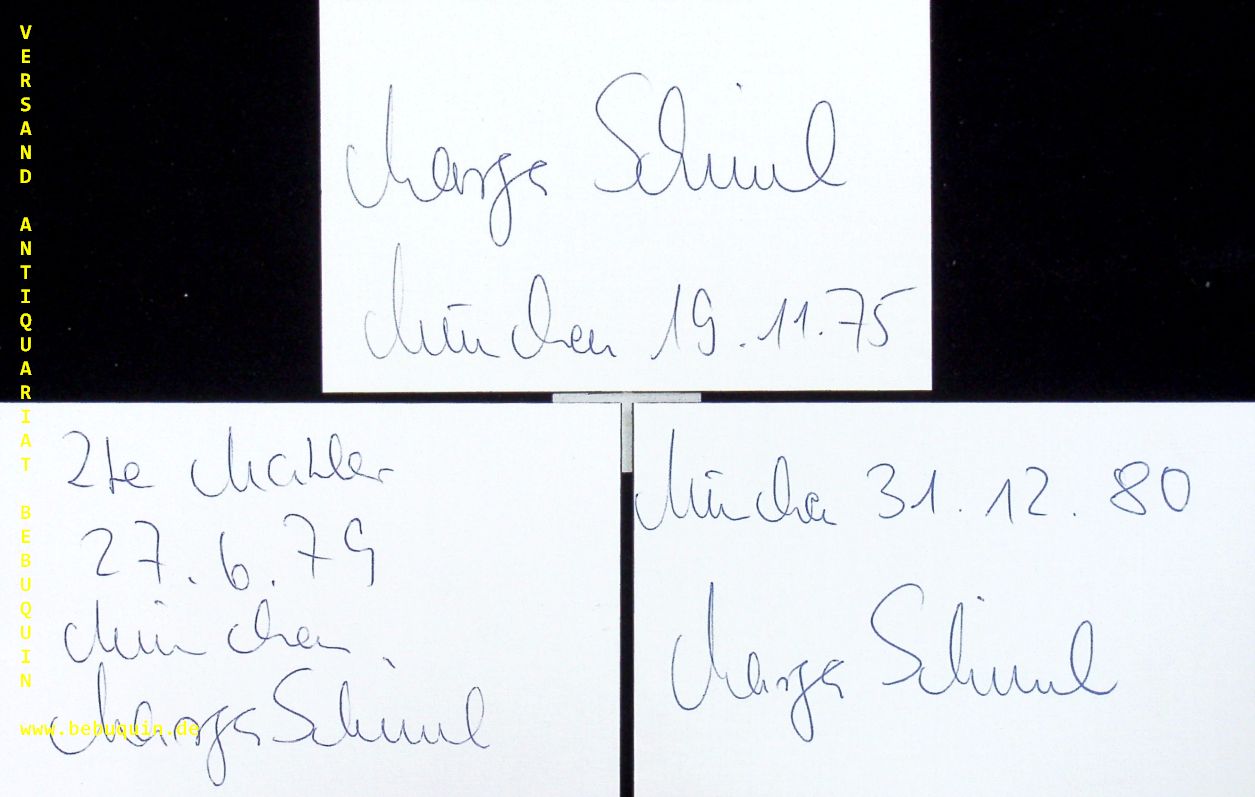 VERSAND ANTIQUARIAT BEBUQUIN
Marga Schiml
München 19.11.75
2te Mahler
27.6.79
München
Marga Schiml
München 31.12.80
Marga Schiml
www.bebuquin.de